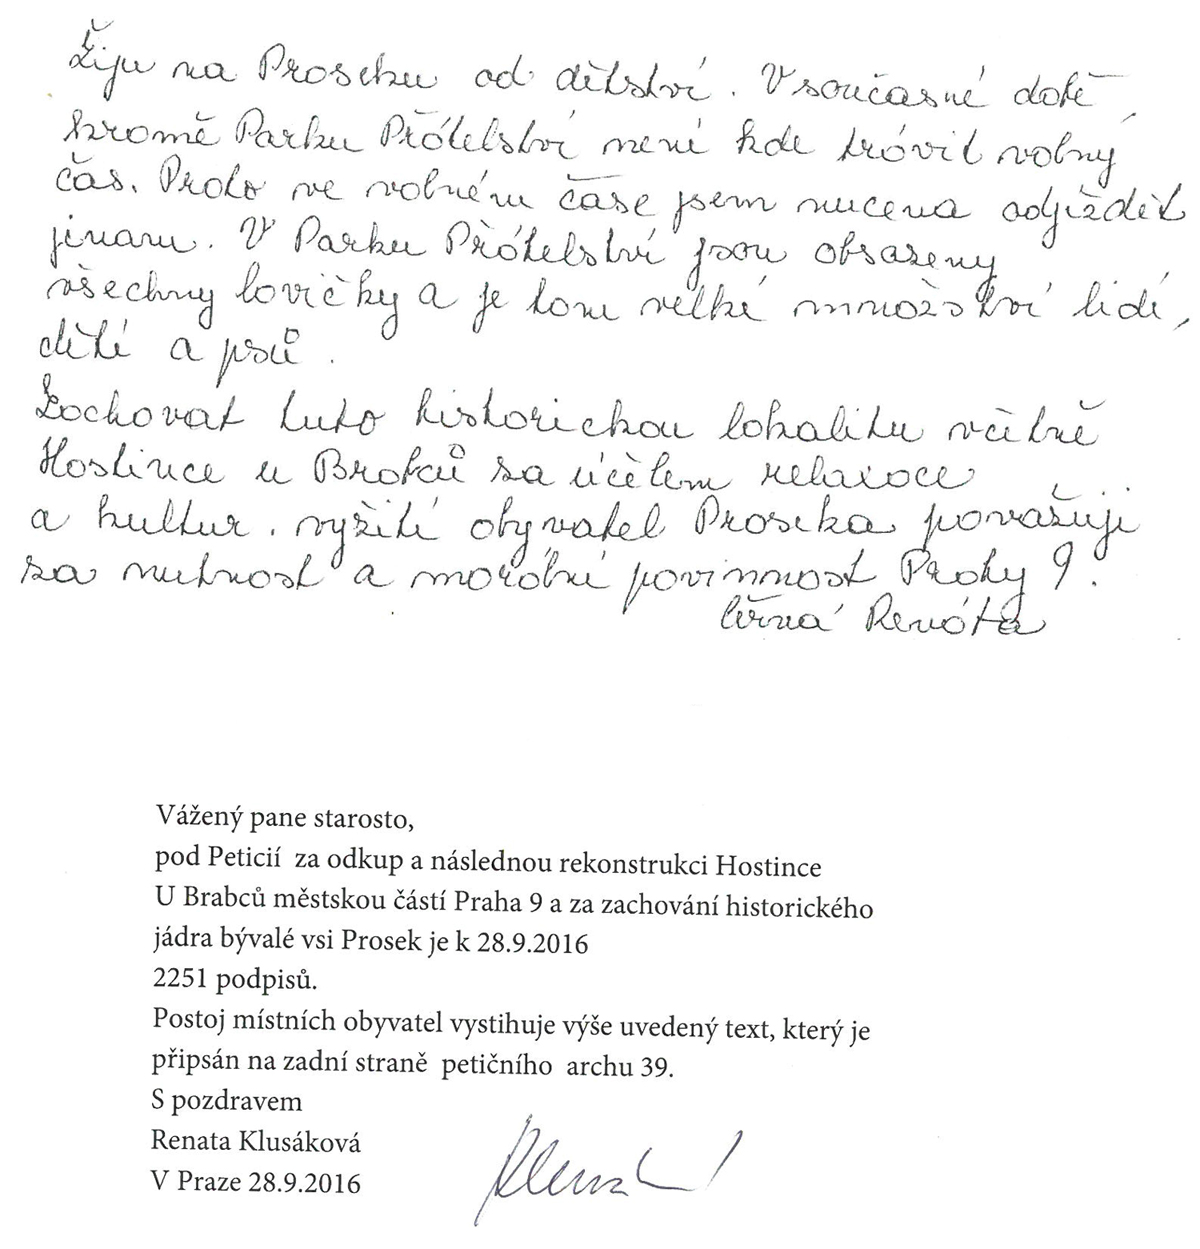 Žiju na Proseku od dětství. V současné době,
kromě Parku Přátelství není kde trávit volný
čas. Proto ve volném čase jsem nucena odjíždět
jinam. V Parku Přátelství jsou obsazeny
všechny lavičky a je tam velké množství lidí,
dětí a psů.
Zachovat tuto historickou lokalitu včetně
Hostince u Brabců za účelem relaxace
a kultur. vyžití obyvatel Proseka považuji
za nutnost a morální povinnost Prahy 9.
Černá Renáta
Vážený pane starosto,
pod Peticií za odkup a následnou rekonstrukci Hostince
U Brabců městskou částí Praha 9 a za zachování historického
jádra bývalé vsi Prosek je k 28.9.2016
2251 podpisů.
Postoj místních obyvatel vystihuje výše uvedený text, který je
připsán na zadní straně petičního archu 39.
S pozdravem
Renata Klusáková
V Praze 28.9.2016